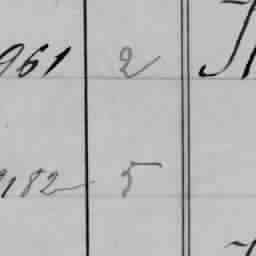 961 2
182 5